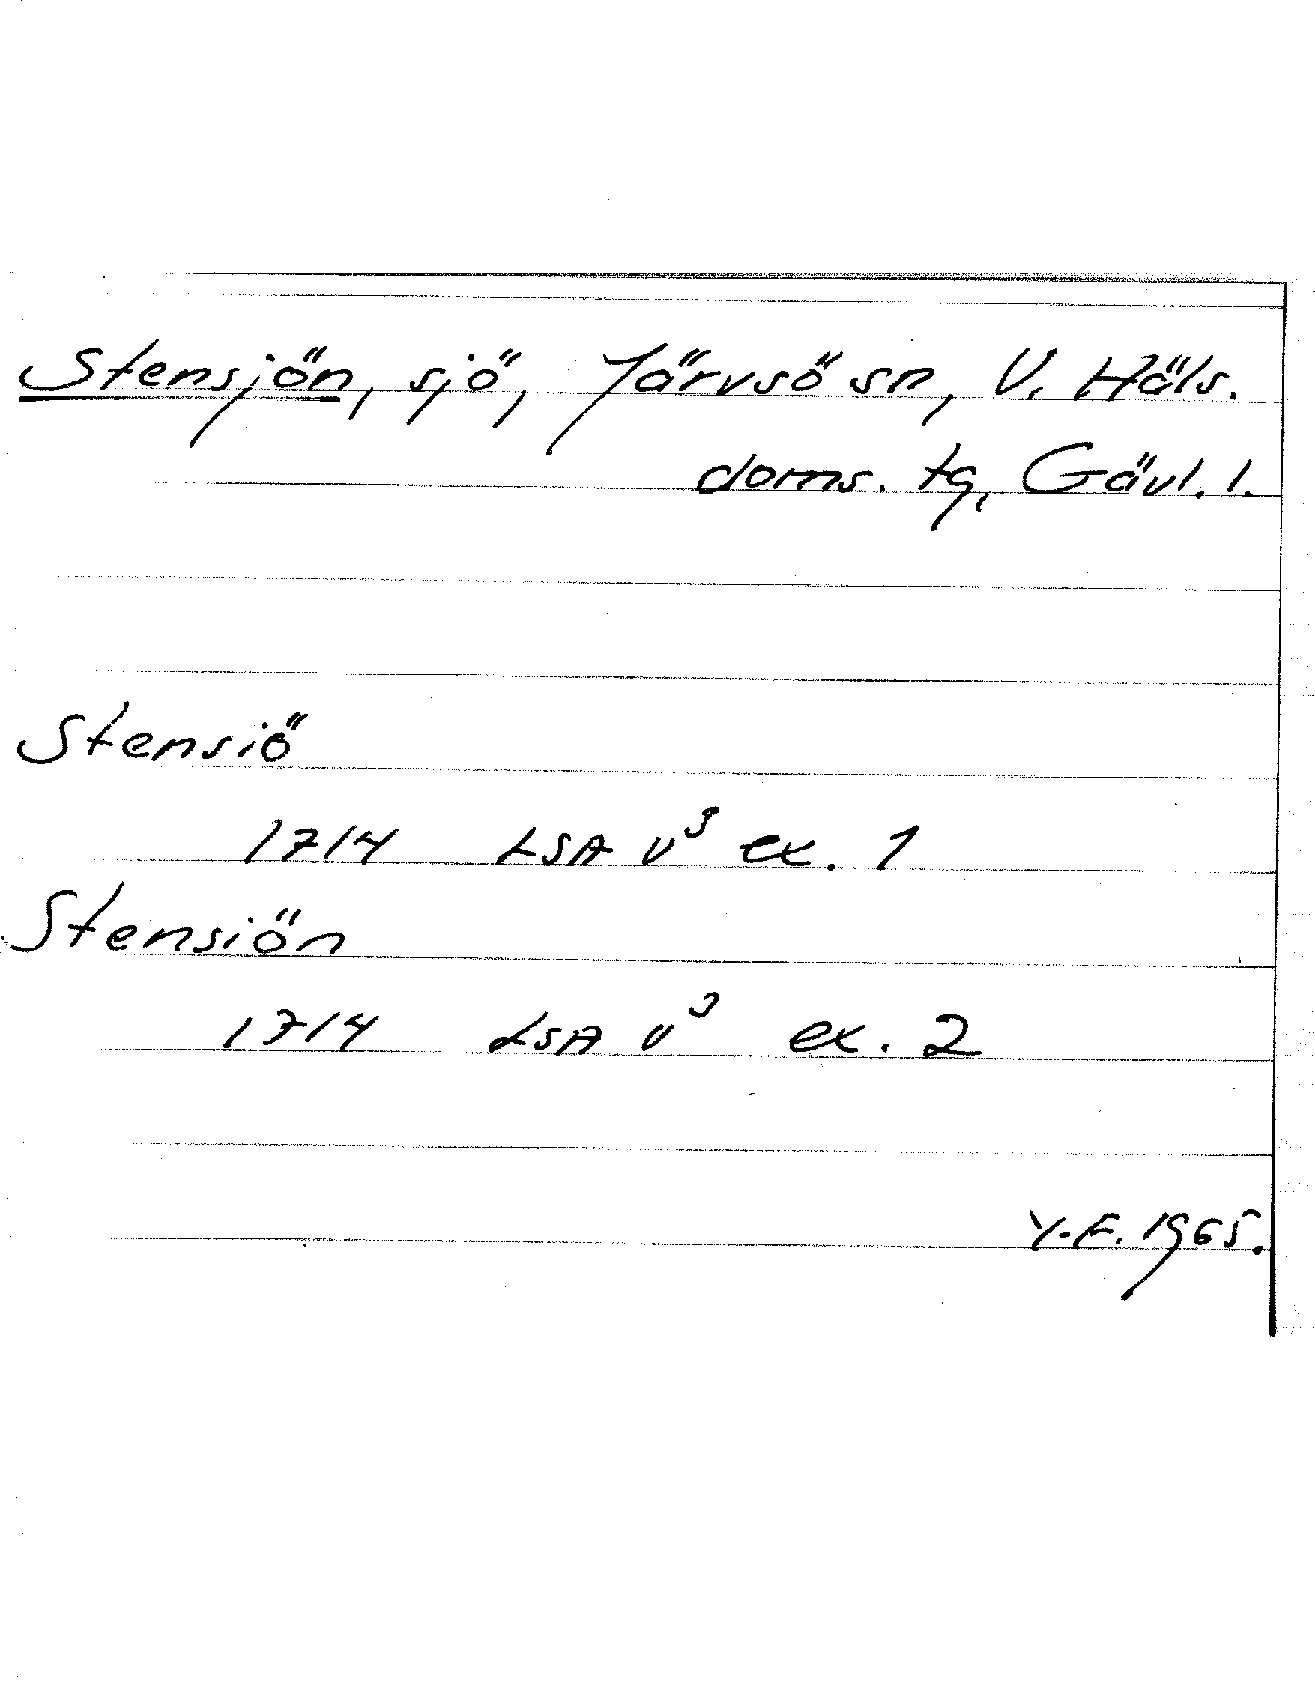 Stensjön, sjö, Järvsö sn, V. Häls.
doms. tg, Gävl. l.
Stensiö
1714 LSA v³ ex. 1
Stensiön
1714 LSA v³ ex. 2
Y.F. 1965.